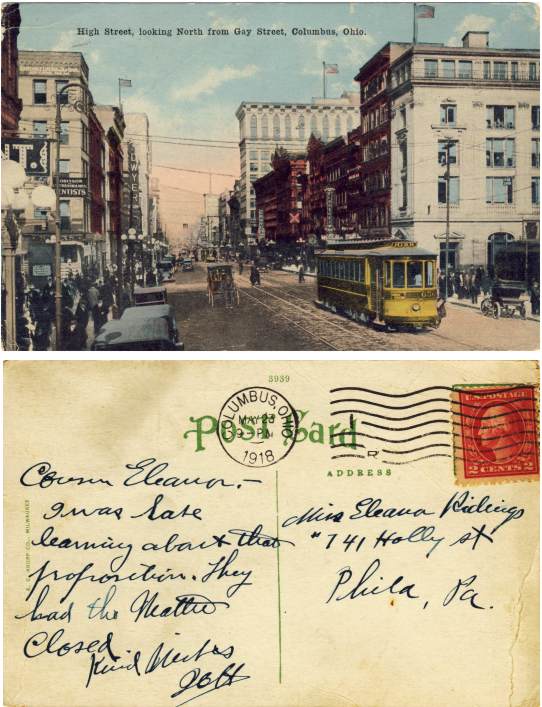 High Street, looking North from Gay Street, Columbus, Ohio.
DENTISTS
3939
Post Card
COLUMBUS, OHIO
MAY 23
9 PM
1918
U.S. POSTAGE
2 CENTS 2
ADDRESS
Cousin Eleanor. –
I was late
learning about that
proposition. They
had the Matter
Closed
Kind
Miss Eleanor Ridings
"741 Holly st
Phila, Pa.